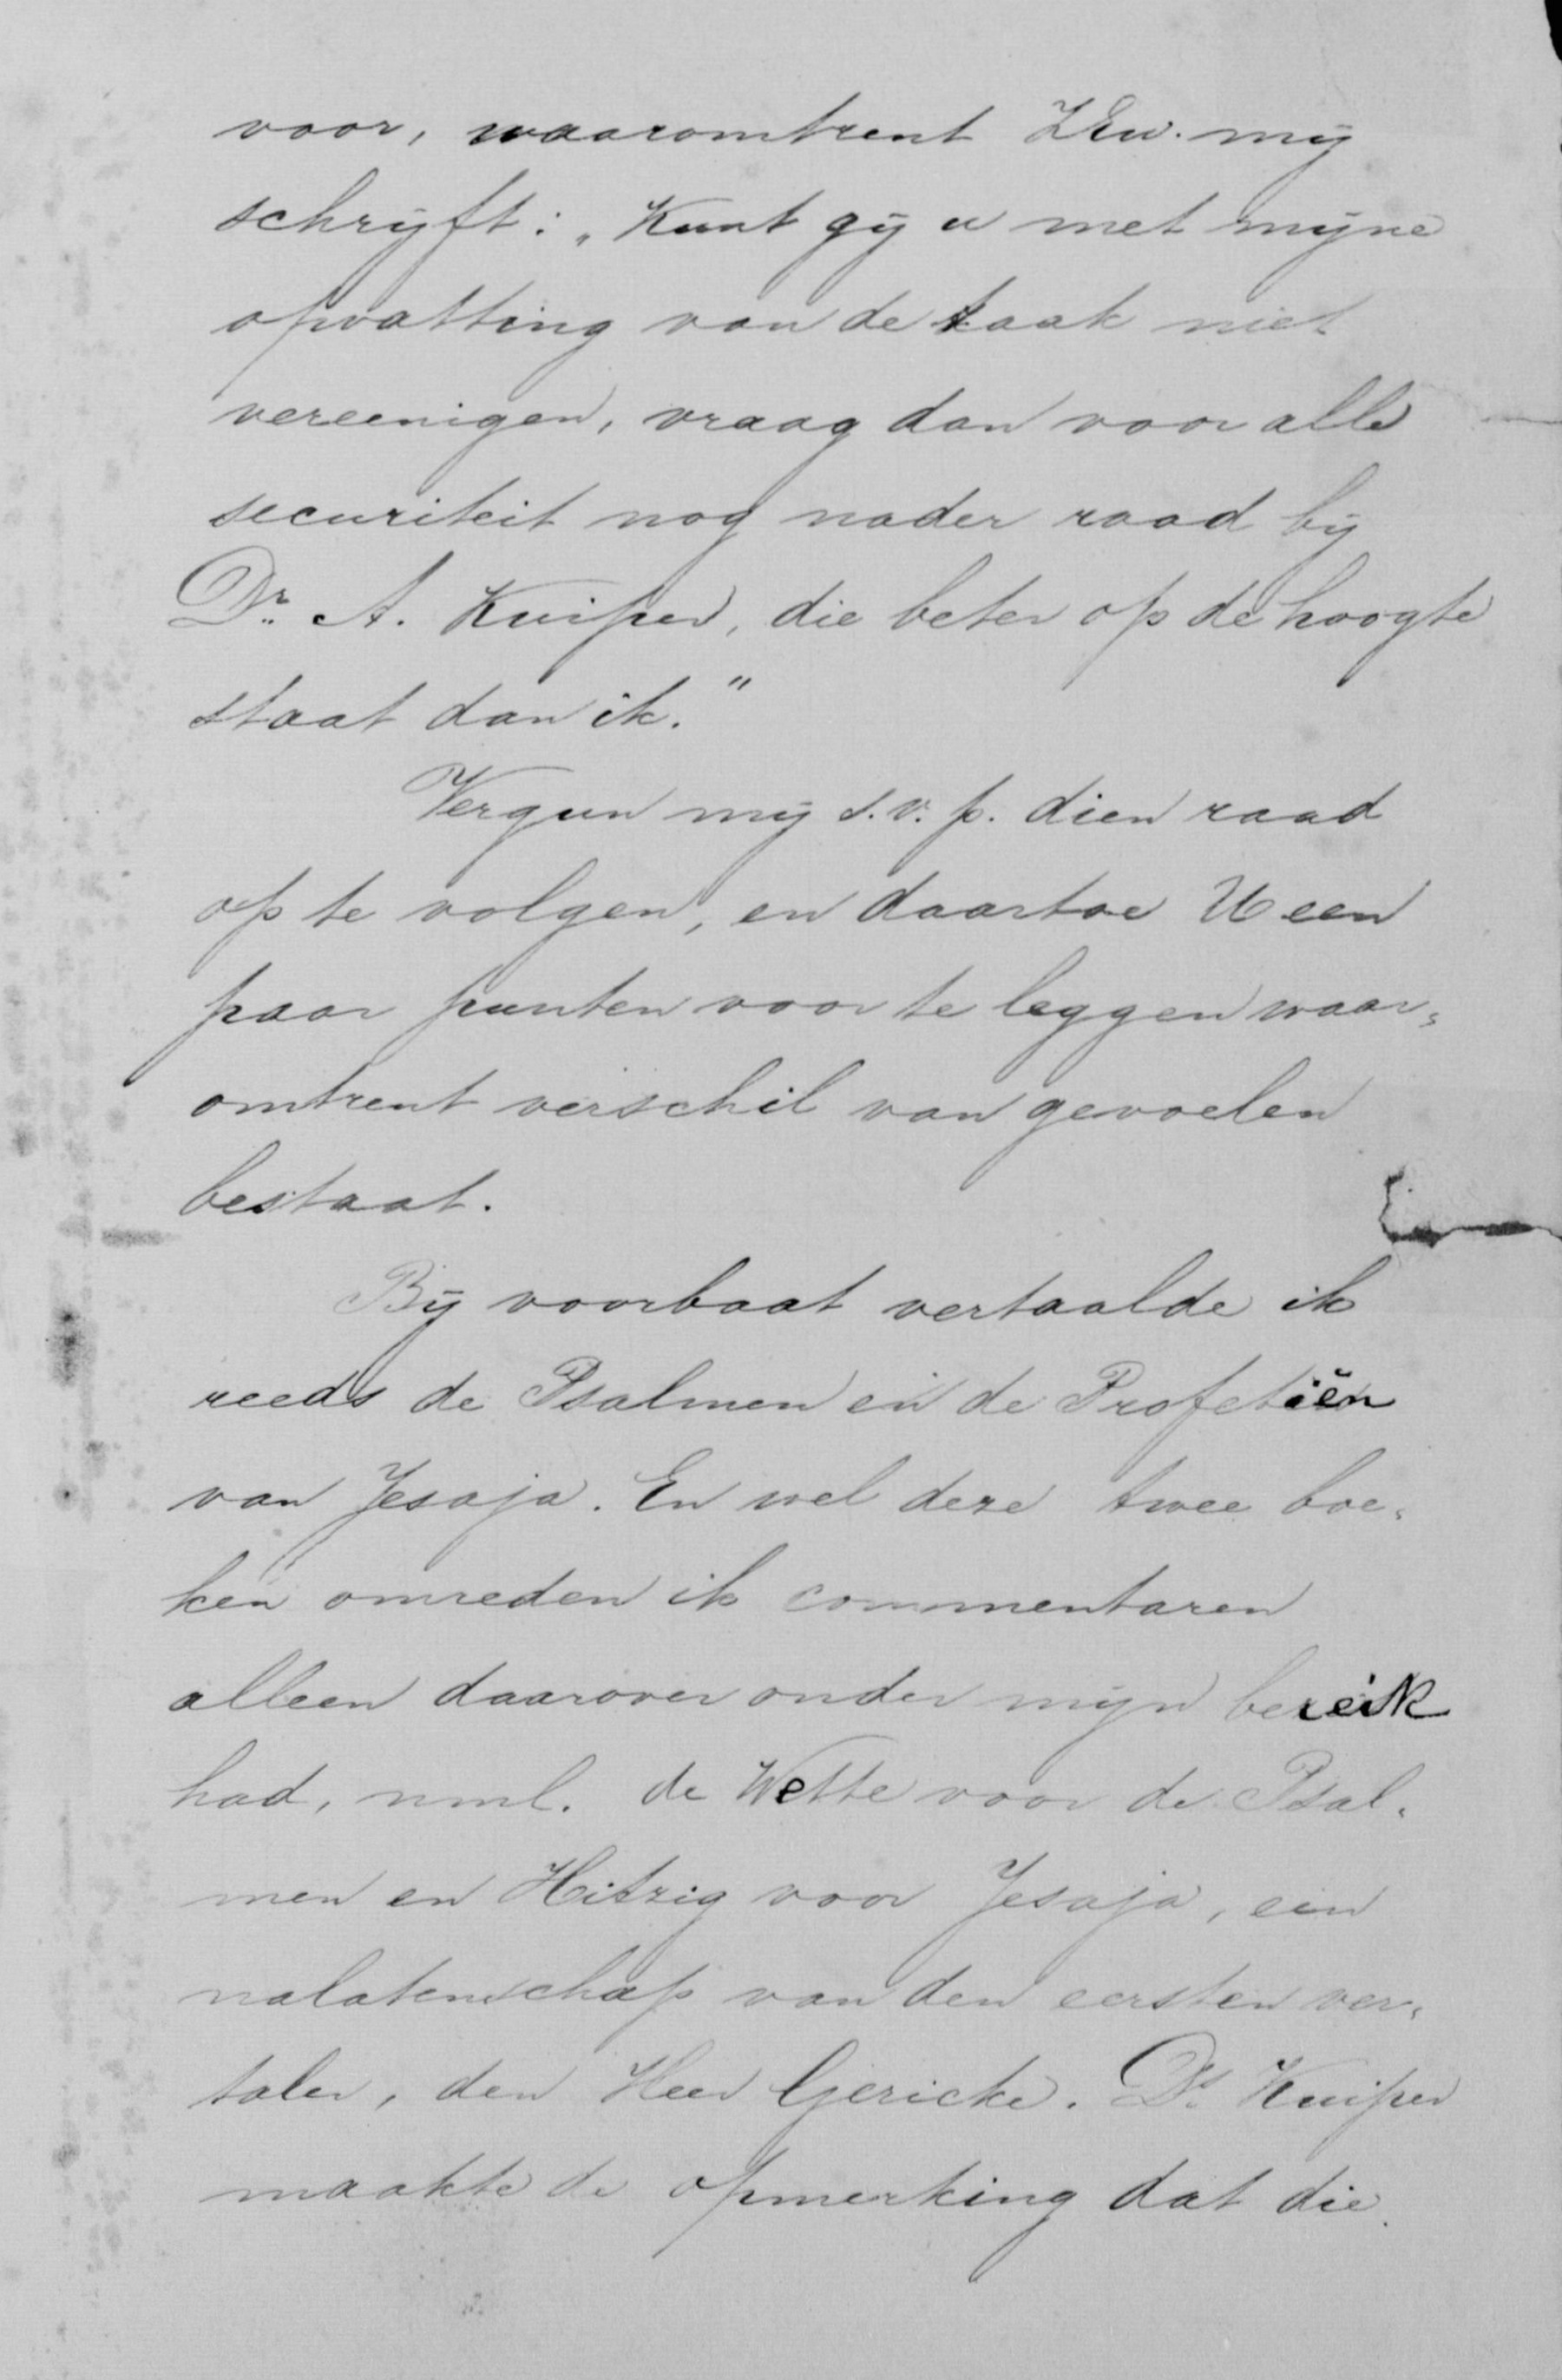 voor, waaromtrent ZEw. mij
schrijft: „Kunt gij u met mijne
opvatting van de taak niet
vereenigen, vraag dan voor alle
securiteit nog nader raad bij
Dr. A. Kuiper, die beter op de hoogte
staat dan ik."
Vergun mij s.v.p. dien raad
op te volgen, en daartoe U een
paar punten voor te leggen waar„
omtrent verschil van gevoelen
bestaat.
Bij voorbaat vertaalde ik
reeds de Psalmen en de Profetiën
van Jesaja. En wel deze twee boe„
ken omreden ik commentaren
alleen daarover onder mijn bereik
had, nml. de Wette voor de Psal„
men en Hitzig voor Jesaja, een
nalatenschap van den eersten ver„
taler, den Heer Gericke. Ds. Kuiper
maakte de opmerking dat die